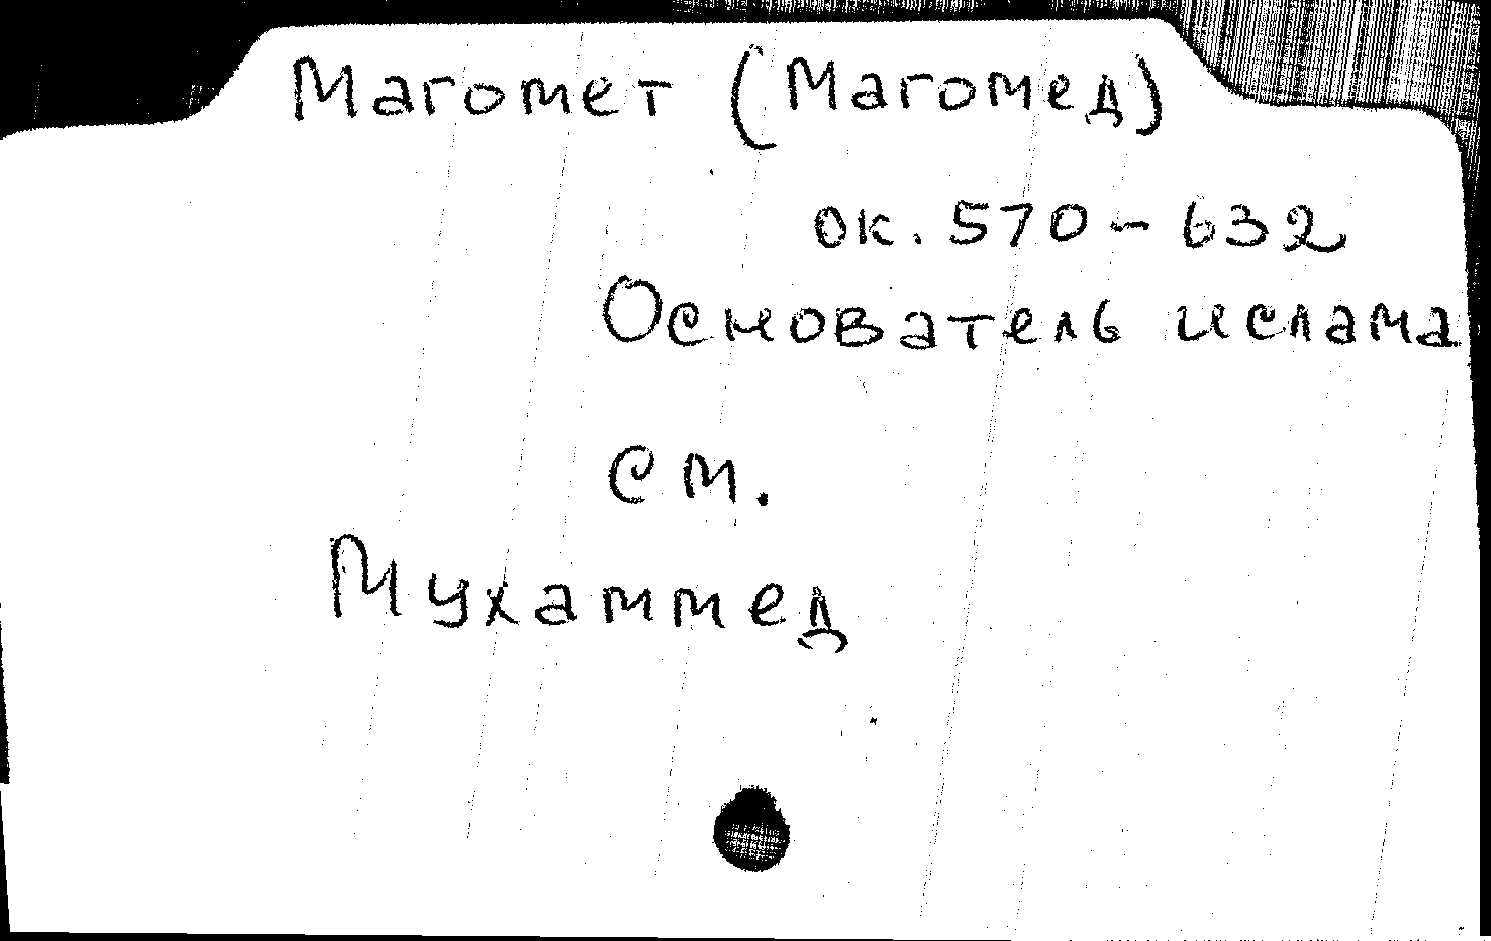 Магомет (Магомед)
ок. 570-632
Основатель ислама
см.
Мухаммед